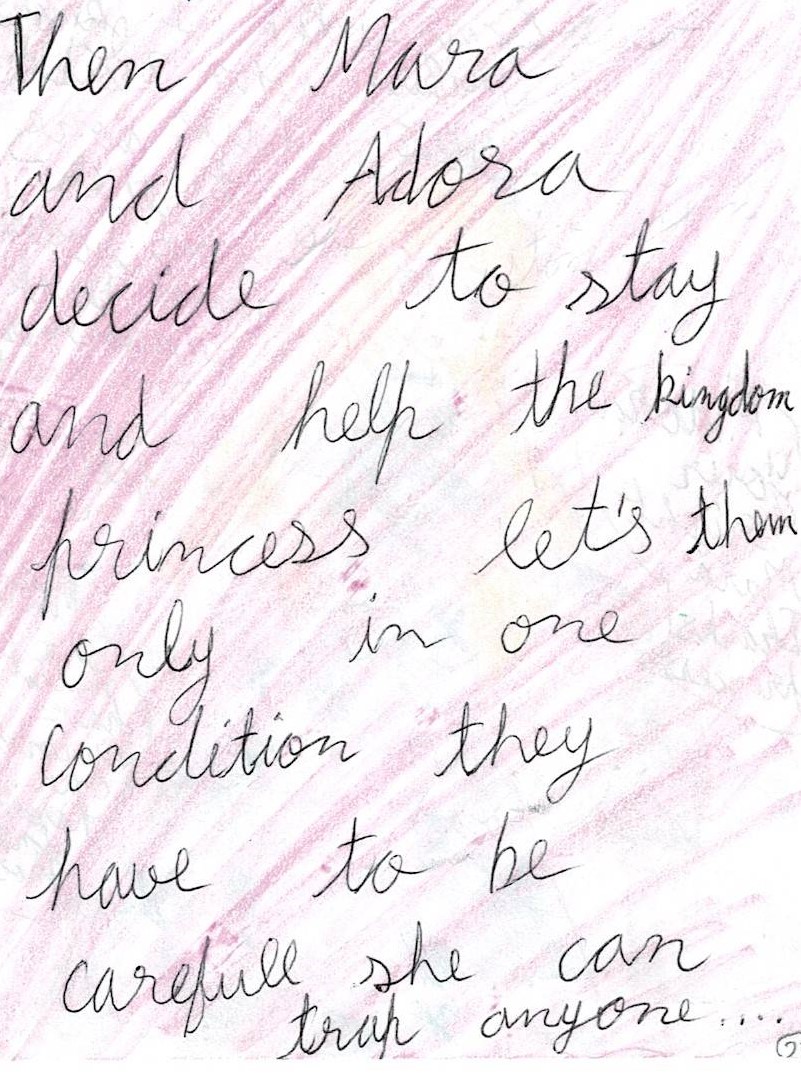 Then Mara
and Adora
decide to stay
and help the kingdom
princess let's them
only in one
condition they
have to be
carefull she can
trap anyone....